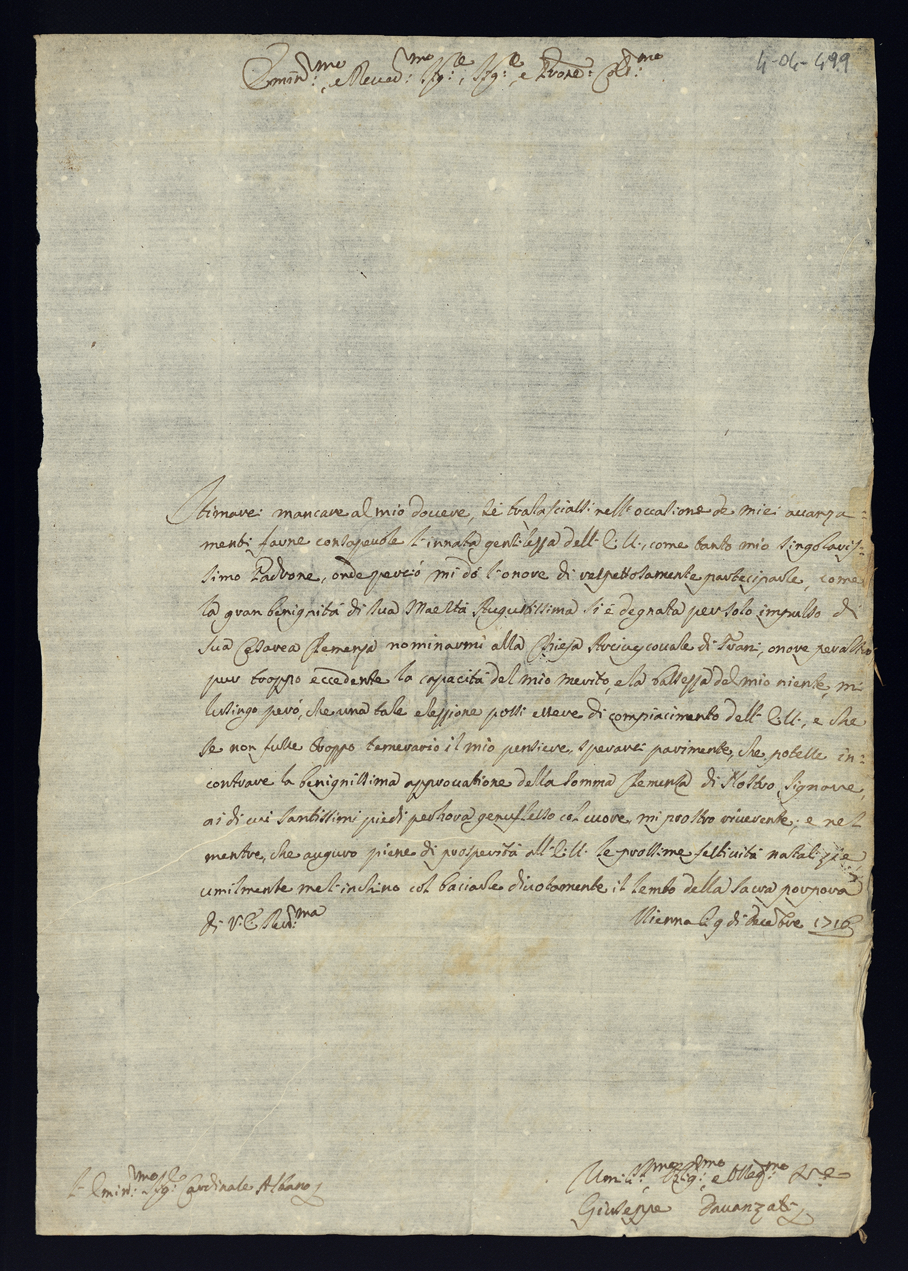 Eminmo:, e Reverdmo: Sige:, Sige: e Prone: Colmo:
4-04-499
Stimarei mancare al mio dovere, se tralasciassi nell'occasione de miei avanza=
menti farne consapevole l'innata gentilezza dell'E.V., come tanto mio singolaris=
simo Padrone, onde perció mi dó l'onore di rispettosamente parteciparle, come
la gran benignitá di Sua Maestá Augustissima si é degnata per solo impulso di
sua Cesarea Clemenza nominarmi alla Chiesa Arcivescovale di Trani, onore per altro
pur troppo eccedente la capacitá del mio merito, e la bassezza del mio niente, mi
lusingo peró, che una tale elezzione possi essere di compiacimento dell'E.V., e che
se non fusse troppo temerario il mio pensiere, sperarei parimente, che potesse in=
contrare la benignissima approvatione della somma Clemenza di Nostro Signore,
ai di cui santissimi piedi per hora genuflesso col cuore mi prostro riverente; e nel
mentre, che auguro piene di prosperitá all'E.V. le prossime festivitá natalizie
umilmente me l'inchino col baciarle divotamente il lembo della sacra porpora
di V.E. Revma:
Vienna li 9 di Decebre 1716
L'Eminmo: Sige: Cardinale Albano
Umilmo:, e Obligmo: Sre
Giuseppe Davanzati